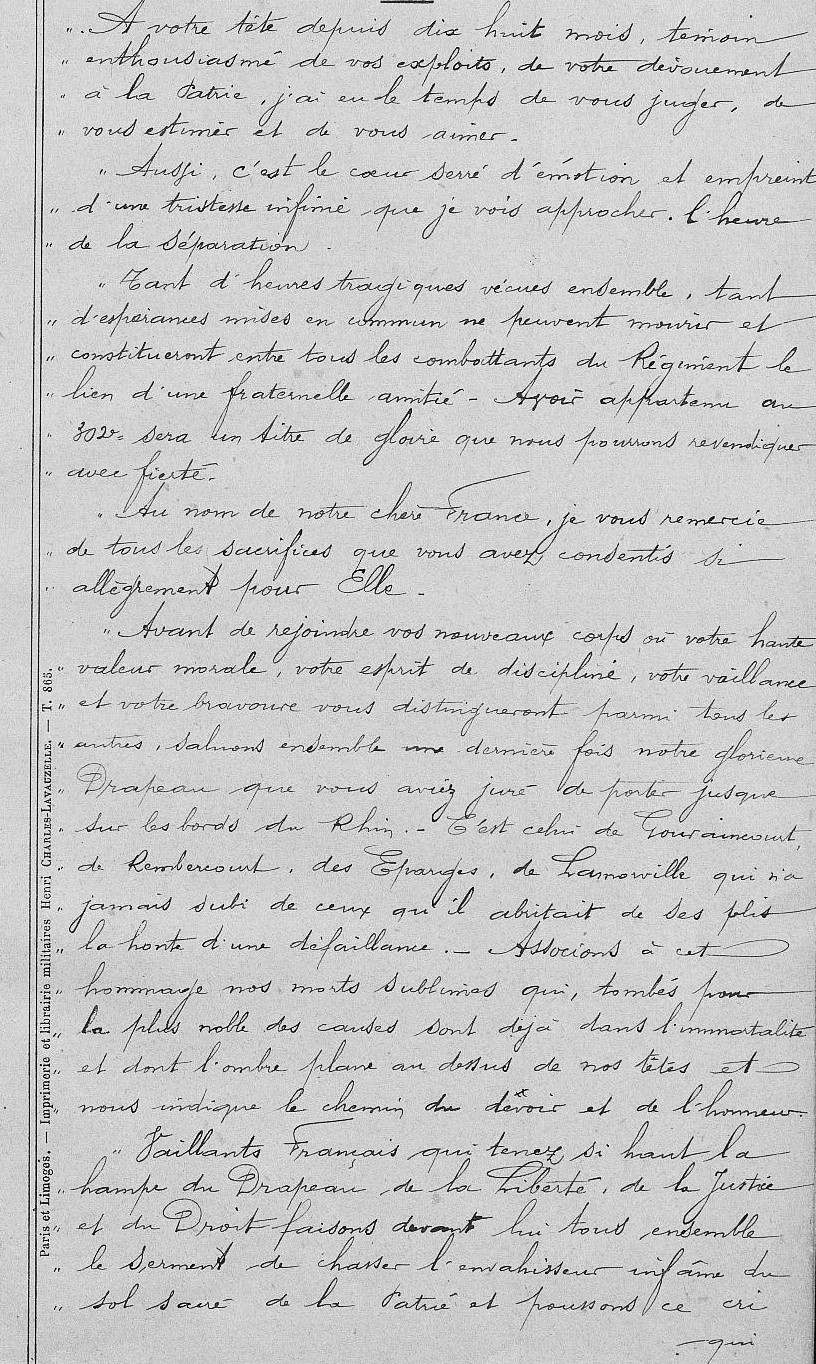 ". A votre tête depuis dix huit mois, témoin
" enthousiasmé de vos exploits, de votre dévouement
" à la Patrie, j'ai eu le temps de vous juger, de
" vous estimer et de vous aimer.
" Aussi, c'est le cœur serré d'émotion et empreint
" d'une tristesse infinie que je vois approcher l'heure
" de la séparation.
" Tant d'heures tragiques vécues ensemble, tant
" d'espérances mises en commun ne peuvent mourir et
" constitueront entre tous les combattants du Régiment le
" lien d'une fraternelle amitié - Avoir appartenu au
" 302e sera un titre de gloire que nous pourrons revendiquer
" avec fierté.
" Au nom de notre chère France, je vous remercie
" de tous les sacrifices que vous avez consentis si
" allègrement pour Elle -
" Avant de rejoindre vos nouveaux corps où votre haute
" valeur morale, votre esprit de discipline, votre vaillance
" et votre bravoure vous distingueront parmi tous les
" autres, saluons ensemble une dernière fois notre glorieux
" Drapeau que vous aviez juré de porter jusque
" sur les bords du Rhin. - C'est celui de Gouraincourt,
" de Rembercourt, des Eparges, de Lamorville qui n'a
" jamais subi de ceux qu'il abritait de ses plis
" la honte d'une défaillance. - Associons à cet
" hommage nos morts sublimes qui, tombés pour
" la plus noble des causes sont déjà dans l'immortalité
" et dont l'ombre plane au dessus de nos têtes et
" nous indique le chemin du devoir et de l'honneur.
" Vaillants Français qui tenez si haut la
" hampe du Drapeau de la Liberté, de la Justice
" et du Droit faisons devant lui tous ensemble
" le serment de chasser l'envahisseur infâme du
" sol sacré de la Patrie et poussons ce cri
- qui
Paris et Limoges. — Imprimerie et librairie militaires Henri CHARLES-LAVAUZELLE. — T. 865.